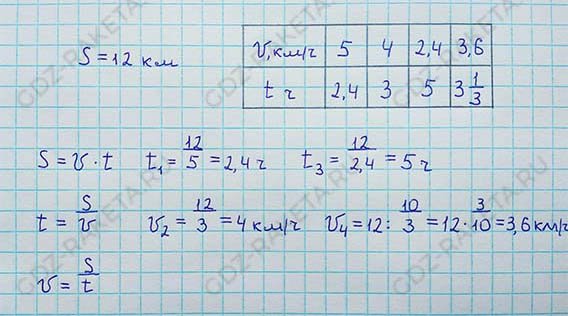 S = 12 км
v, км/ч 5 4 2,4 3,6
t ч 2,4 3 5 3 1/3
S = v · t t₁ = 12/5 = 2,4 ч t₃ = 12/2,4 = 5 ч
t = S/v v₂ = 12/3 = 4 км/ч v₄ = 12 : 10/3 = 12 · 3/10 = 3,6 км/ч
v = S/t
GDZ-RAKETA.RU